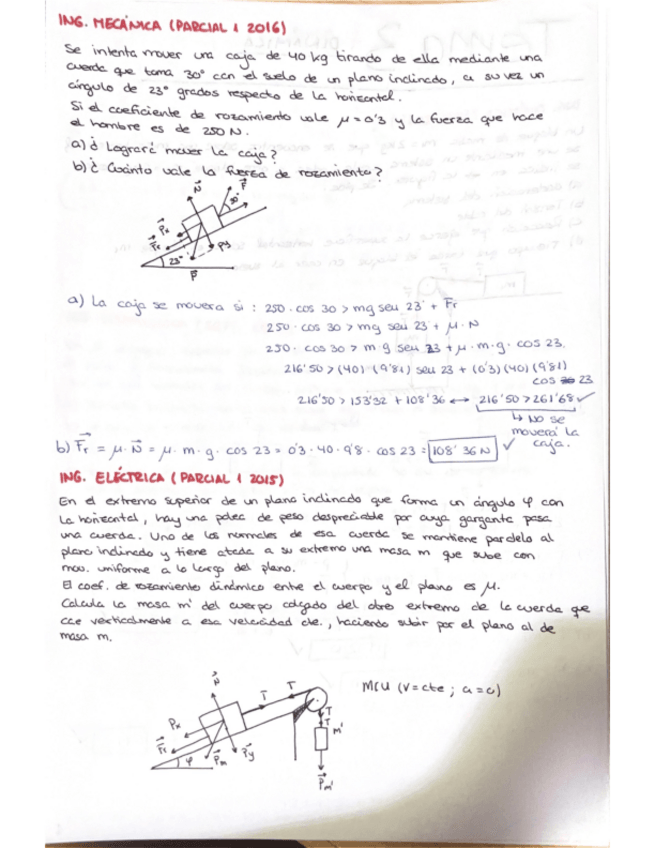 ING. MECÁNICA (PARCIAL 1 2016)
Se intenta mover una caja de 40 kg tirando de ella mediante una
cuerda que toma 30° con el suelo de un plano inclinado, a su vez un
ángulo de 23° grados respecto de la horizontal.
Si el coeficiente de rozamiento vale μ=0'3 y la fuerza que hace
el hombre es de 250 N.
a) ¿Logrará mover la caja?
b) ¿Cuánto vale la fuerza de rozamiento?
N F
30°
Px
Fr
Py
23°
P
a) La caja se movera si : 250 · cos 30 > mg sen 23° + Fr
250 · cos 30 > mg sen 23 + μ · N
250 · cos 30 > m·g sen 23 + μ · m·g · cos 23.
216'50 > (40)·(9'81) sen 23 + (0'3)(40)(9'81)
cos 23
216'50 > 153'32 + 108'36 ↔ 216'50 > 261'68 ✓
↳ No se
moverá la
caja.
b) Fr = μ · N = μ · m · g · cos 23 = 0'3 · 40 · 9'8 · cos 23 = 108'36 N ✓
ING. ELÉCTRICA (PARCIAL 1 2015)
En el extremo superior de un plano inclinado que forma un ángulo φ con
la horizontal, hay una polea de peso despreciable por cuya garganta pasa
una cuerda. Uno de los normales de esa cuerda se mantiene paralelo al
plano inclinado y tiene atada a su extremo una masa m que sube con
mov. uniforme a lo largo del plano.
El coef. de rozamiento dinámico entre el cuerpo y el plano es μ.
Calcula la masa m' del cuerpo colgado del otro extremo de la cuerda que
cae verticalmente a esa velocidad cte., haciendo subir por el plano al de
masa m.
N
T T
MCU (v=cte ; a=0)
Px
T
T
m'
Fr
Pm
Py
φ
Pm'